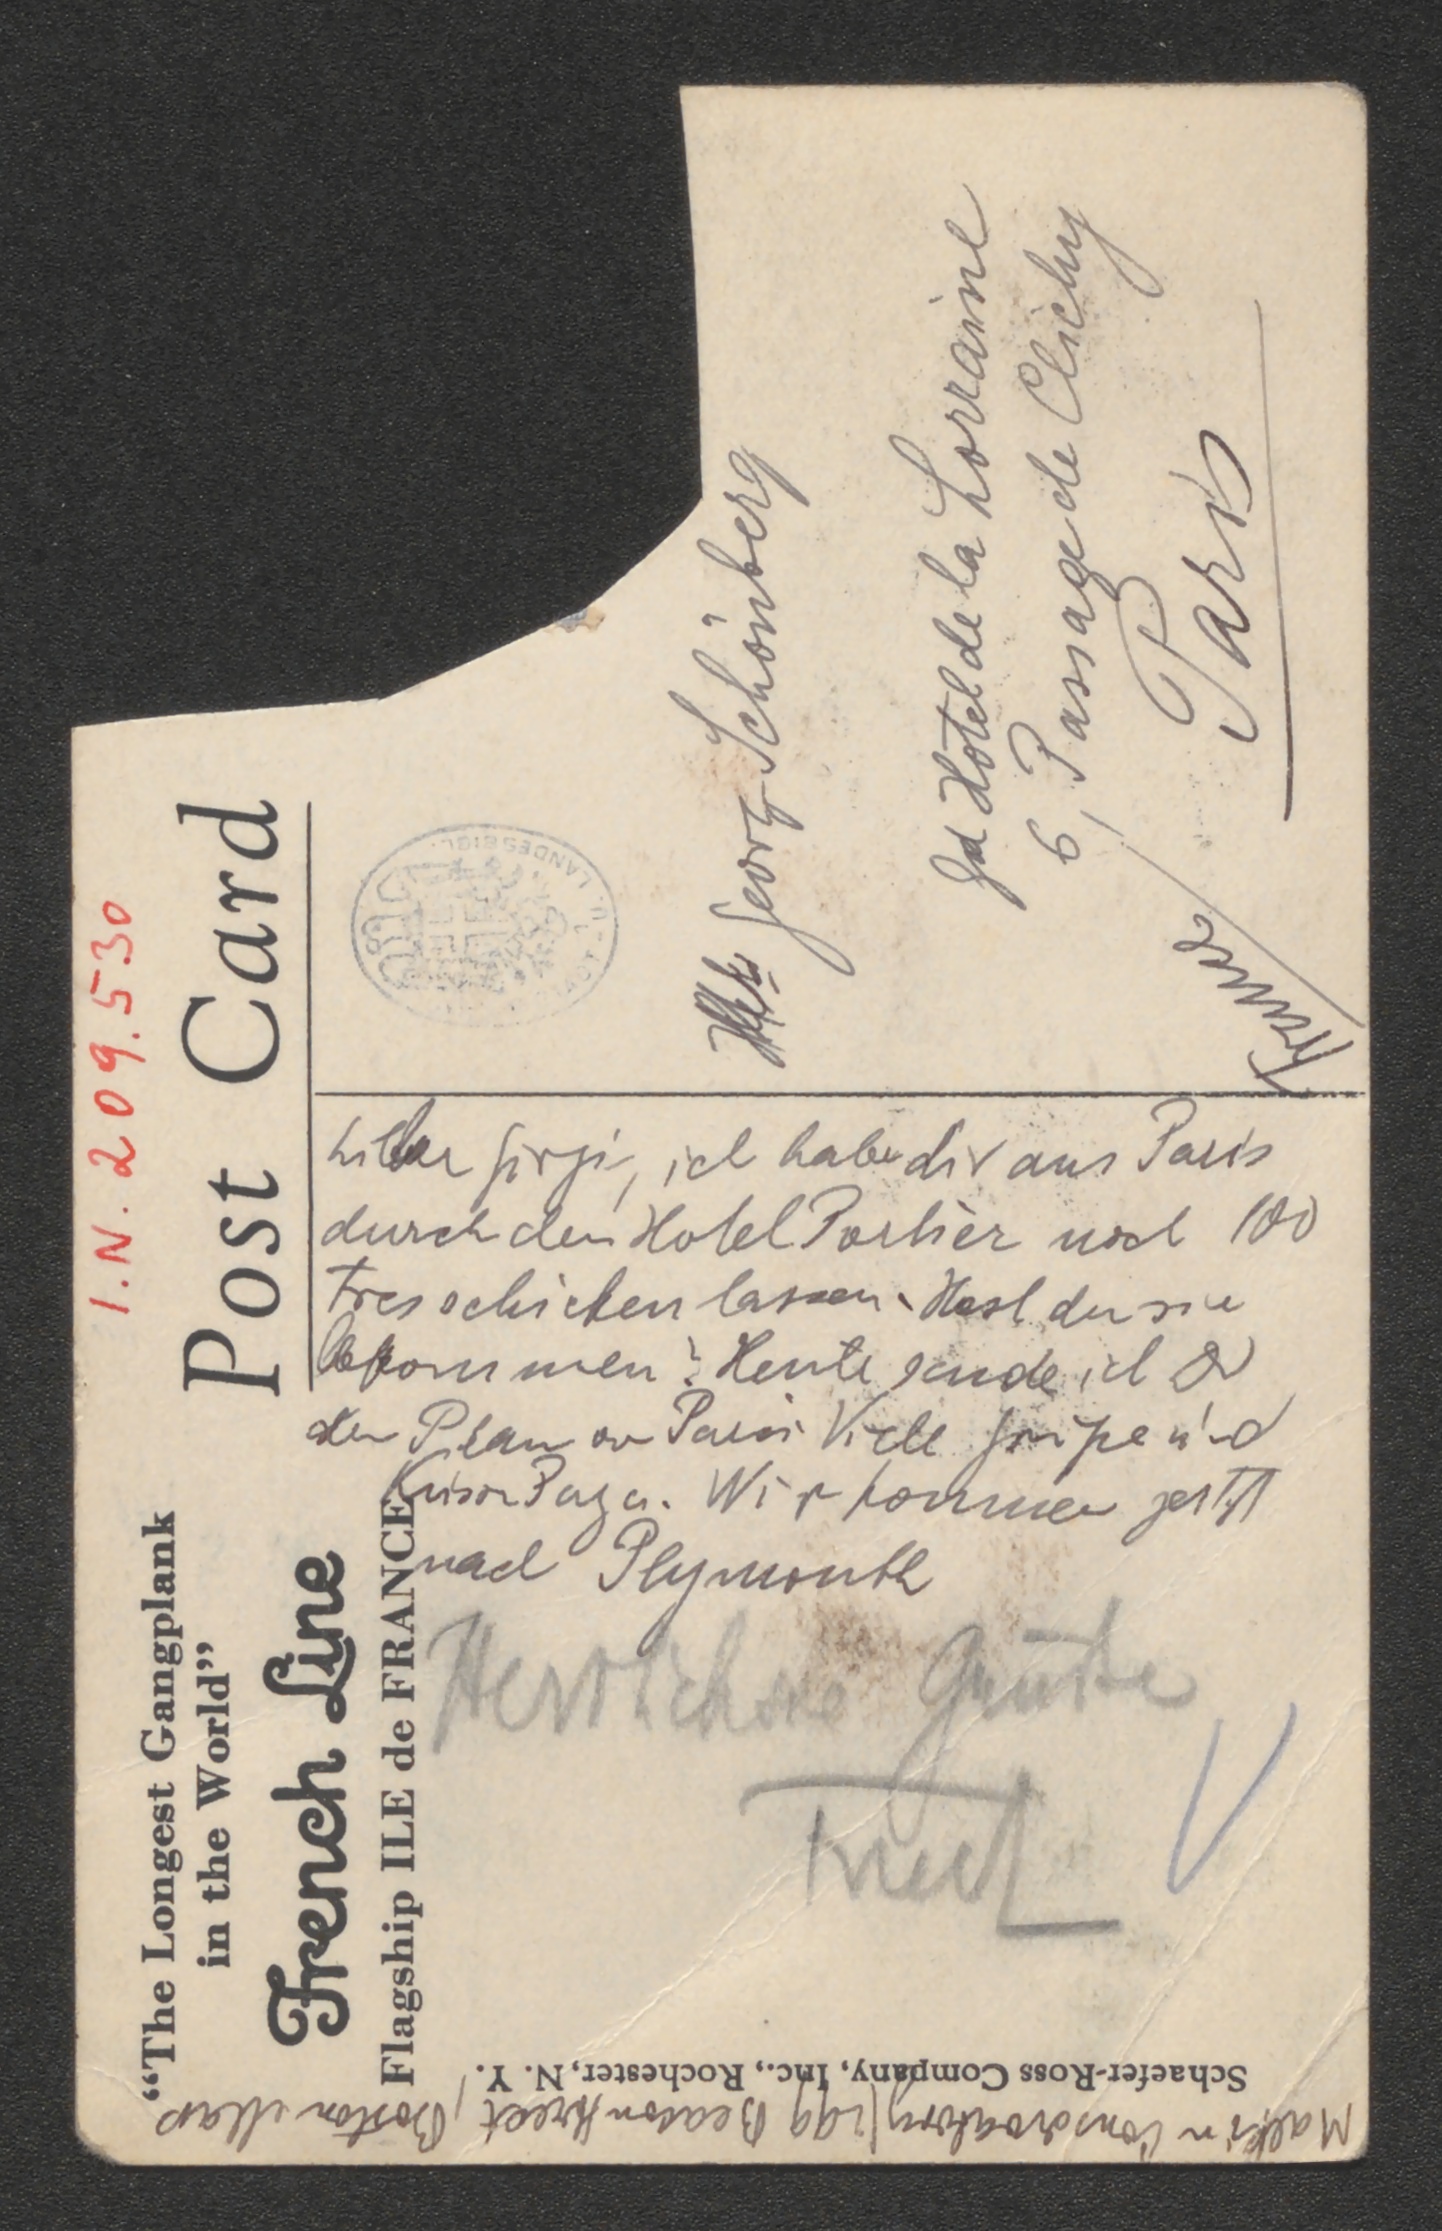 I.N. 209.530
Post Card
"The Longest Gangplank
in the World"
French Line
Flagship ILE de FRANCE
Schaefer-Ross Company, Inc., Rochester, N. Y.
LANDESBIBL
Georg Schönberg
Hotel de la Lorraine
6, Passage de Clichy
Paris
Lieber Girgi, ich habe dir aus Paris
durch den Hotel Portier noch 100
Frcs schicken lassen. Hast du sie
bekommen? Heute sende ich
den Plan v Paris Viele Grüße und
Küsse Papa. Wir kommen jetzt
nach Plymouth
Herzlichste Grüße
Trude
Malkin Conservatory 299 Beacon Street, Boston Mass